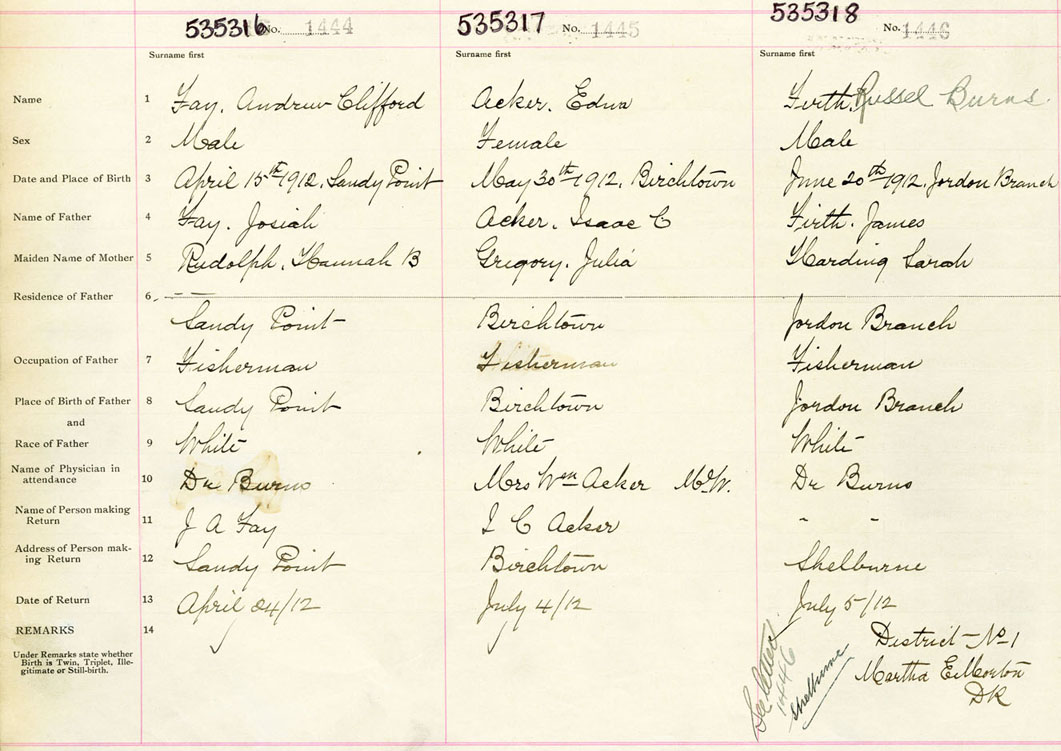 535316 No. 1444 535317 No. 1445 535318 No. 1446
Surname first Surname first Surname first
Name 1 Fay, Andrew Clifford Acker, Edna Firth, Russel Burns.
Sex 2 Male Female Male
Date and Place of Birth 3 April 15th 1912, Sandy Point May 30th 1912, Birchtown June 20th 1912, Jordon Branch
Name of Father 4 Fay, Josiah Acker, Isaac C Firth, James
Maiden Name of Mother 5 Rudolph, Hannah B Gregory, Julia Harding Sarah
Residence of Father 6
Sandy Point Birchtown Jordon Branch
Occupation of Father 7 Fisherman Fisherman Fisherman
Place of Birth of Father 8 Sandy Point Birchtown Jordon Branch
and
Race of Father 9 White White White
Name of Physician in
attendance 10 Dr Burns Mrs Wm Acker M.W. Dr Burns
Name of Person making
Return 11 J A Fay I C Acker " "
Address of Person mak-
ing Return 12 Sandy Point Birchtown Shelburne
Date of Return 13 April 24/12 July 4/12 July 5/12
REMARKS 14 District-No 1
Under Remarks state whether
Birth is Twin, Triplet, Ille-
gitimate or Still-birth.
Martha E Morton
DR
See letter
1446
Shelburne